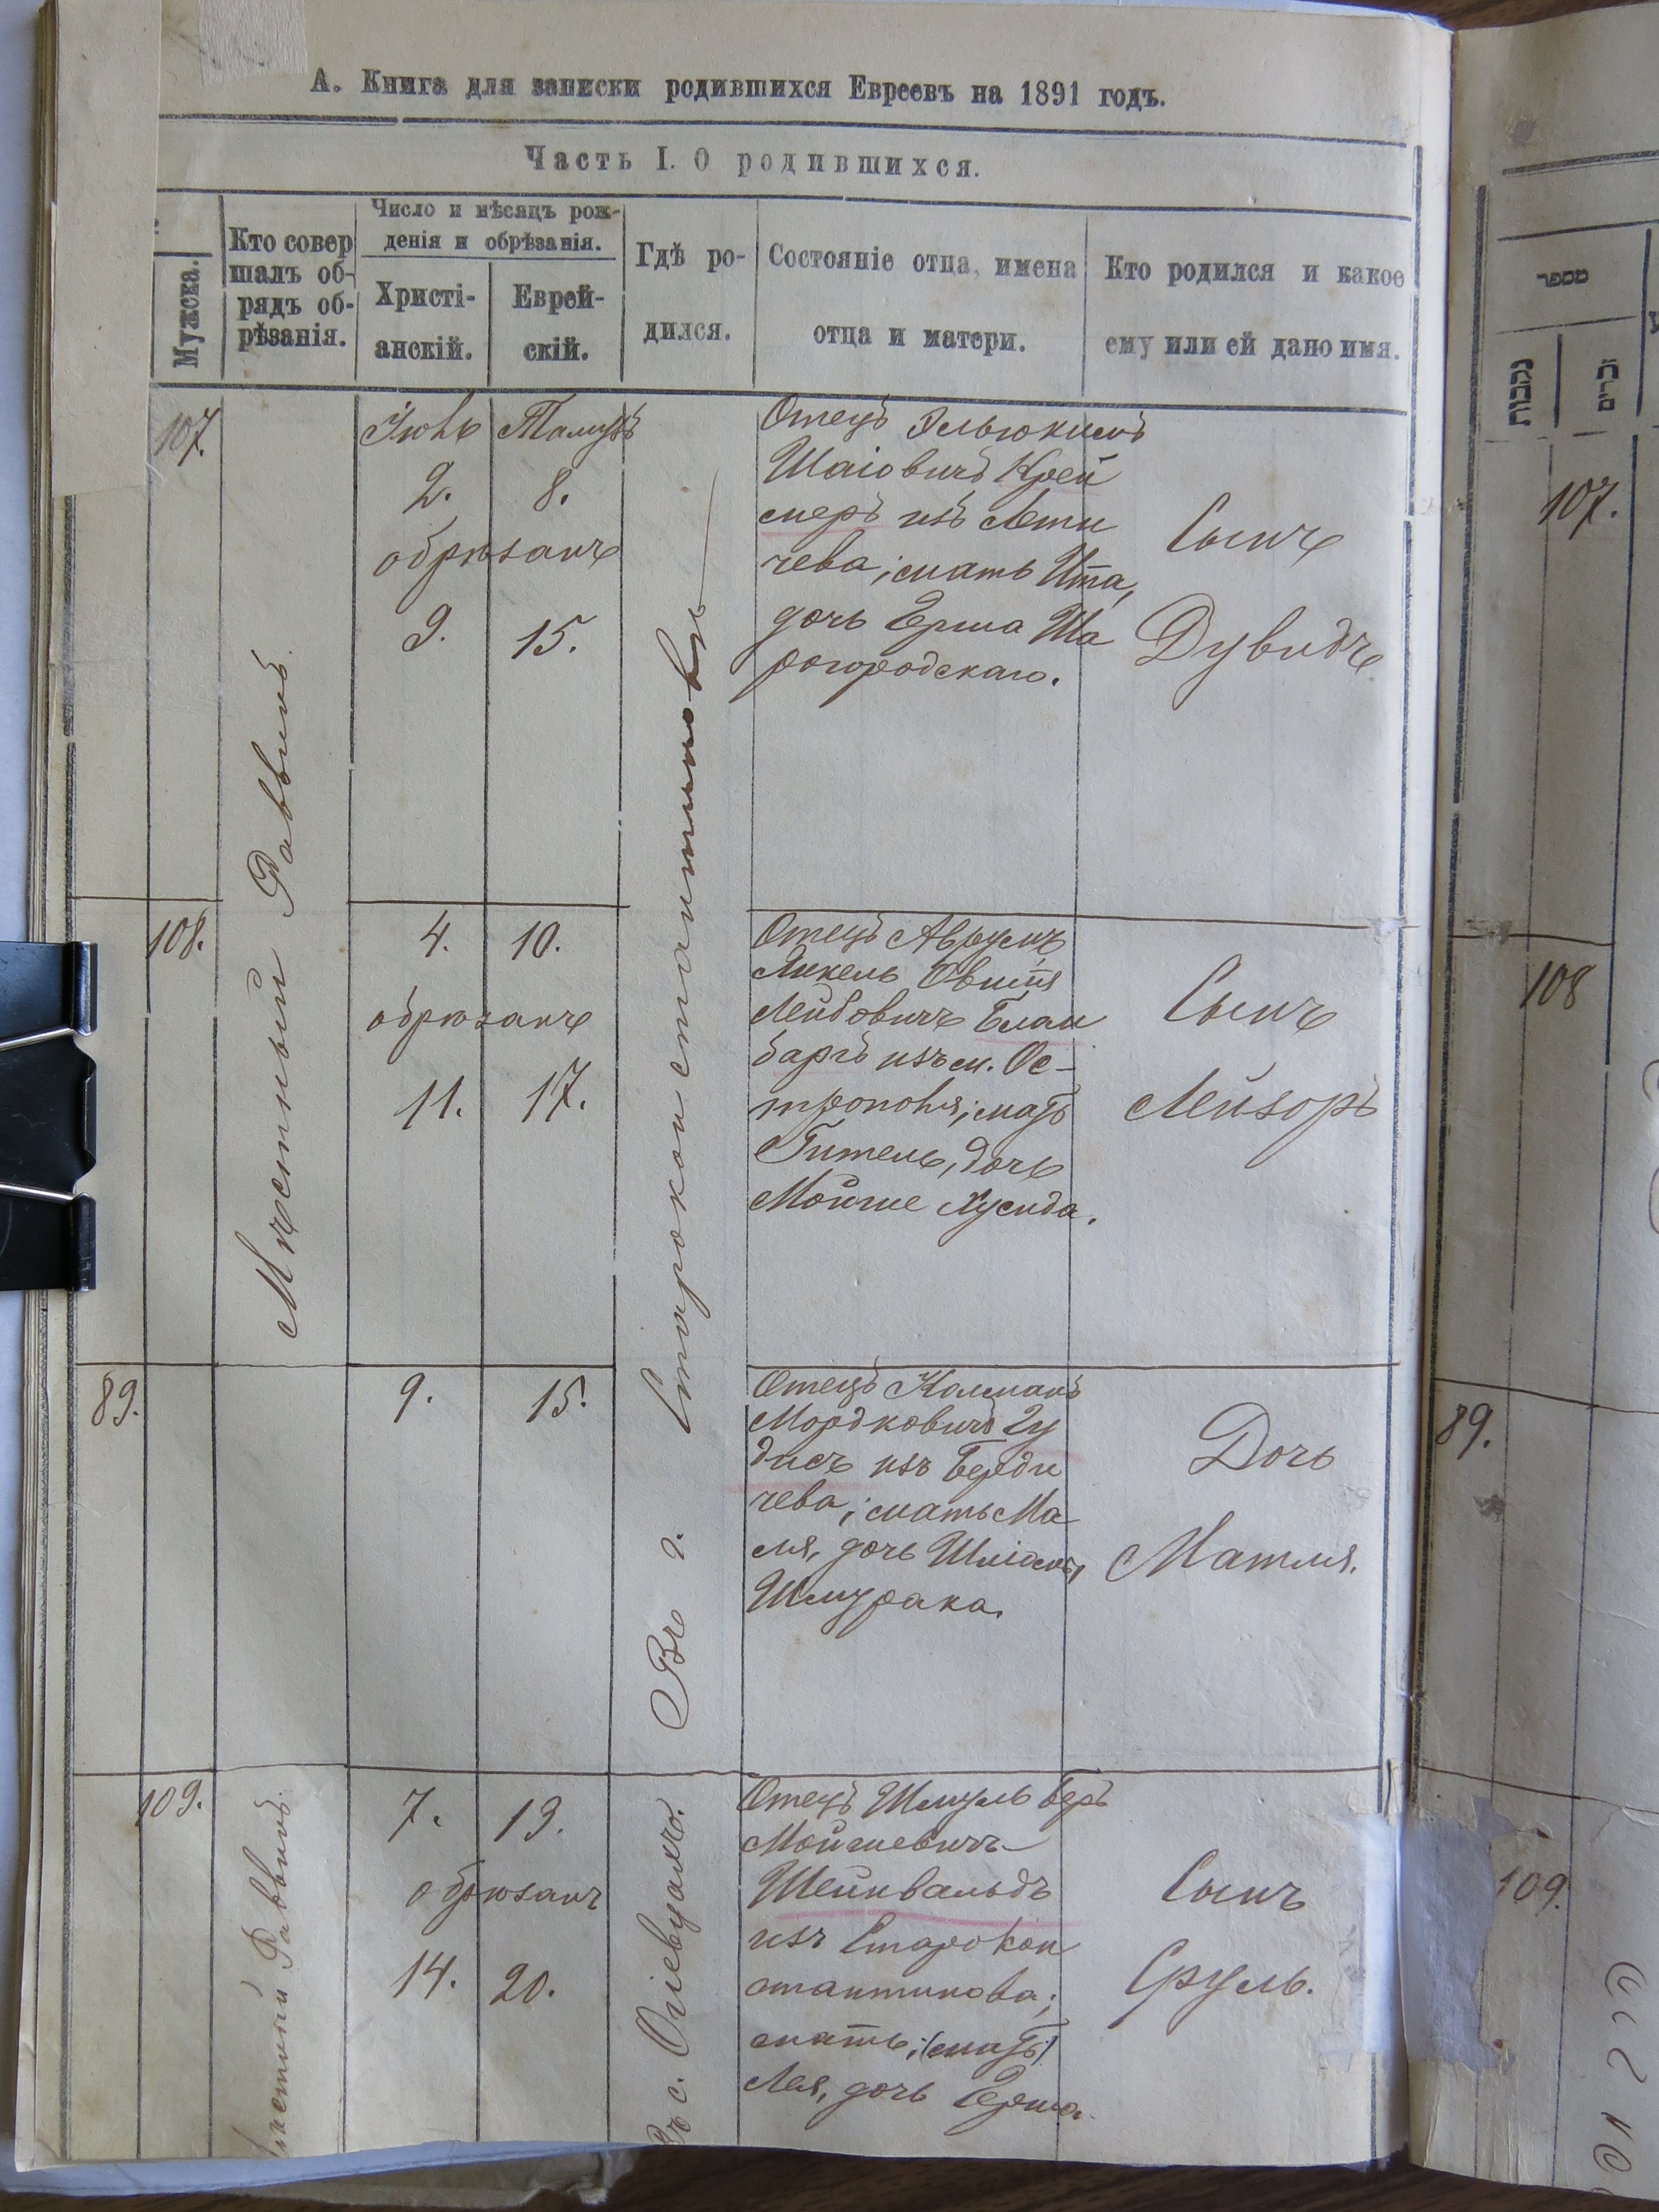 А. Книга для записки родившихся Евреевъ на 1891 годъ.
Часть I. О родившихся.
Мужска.
Кто совер
шалъ об-
рядъ об-
рѣзанія.
Число и мѣсяцъ рож-
денія и обрѣзанія.
Христі-
анскій.
Еврей-
скій.
Гдѣ ро-
дился.
Состояніе отца, имена
отца и матери.
Кто родился и какое
ему или ей дано имя.
107.
Мѣстный Раввинъ.
Іюль
2.
обрѣзанъ
9.
Тамузъ
8.
15.
Въ г. Староконстантиновѣ
Отецъ Эльюкимъ
Шаіовичъ Крей
меръ изъ Лети
чева; мать Ита,
дочь Ерша Ша
рогородскаго.
Сынъ
Дувидъ
108.
4.
10.
обрѣзанъ
11.
17.
Отецъ Аврумъ
Янкель Овшія
Лейбовичъ Блан
баргъ изъ м. Ос-
трополя; мать
Гитель, дочь
Мойше Хусида.
Сынъ
Лейзоръ
89.
9.
15.
Отецъ Колманъ
Мордковичъ Гу
дисъ изъ Берди
чева; мать Ма
ля, дочь
Шмурака.
Дочь
Матля.
109.
Мѣстный Раввинъ.
7.
13.
обрѣзанъ
14.
20.
Въ с. Огіевцахъ.
Отецъ Шмуль Беръ
Мойшевичъ
Шейнвальдъ
изъ Старокон
стантинова;
мать; (мать)
Лея, дочь Ерша.
Сынъ
Сруль.
מספר
נקבות
זכרים
107.
108
89.
109.